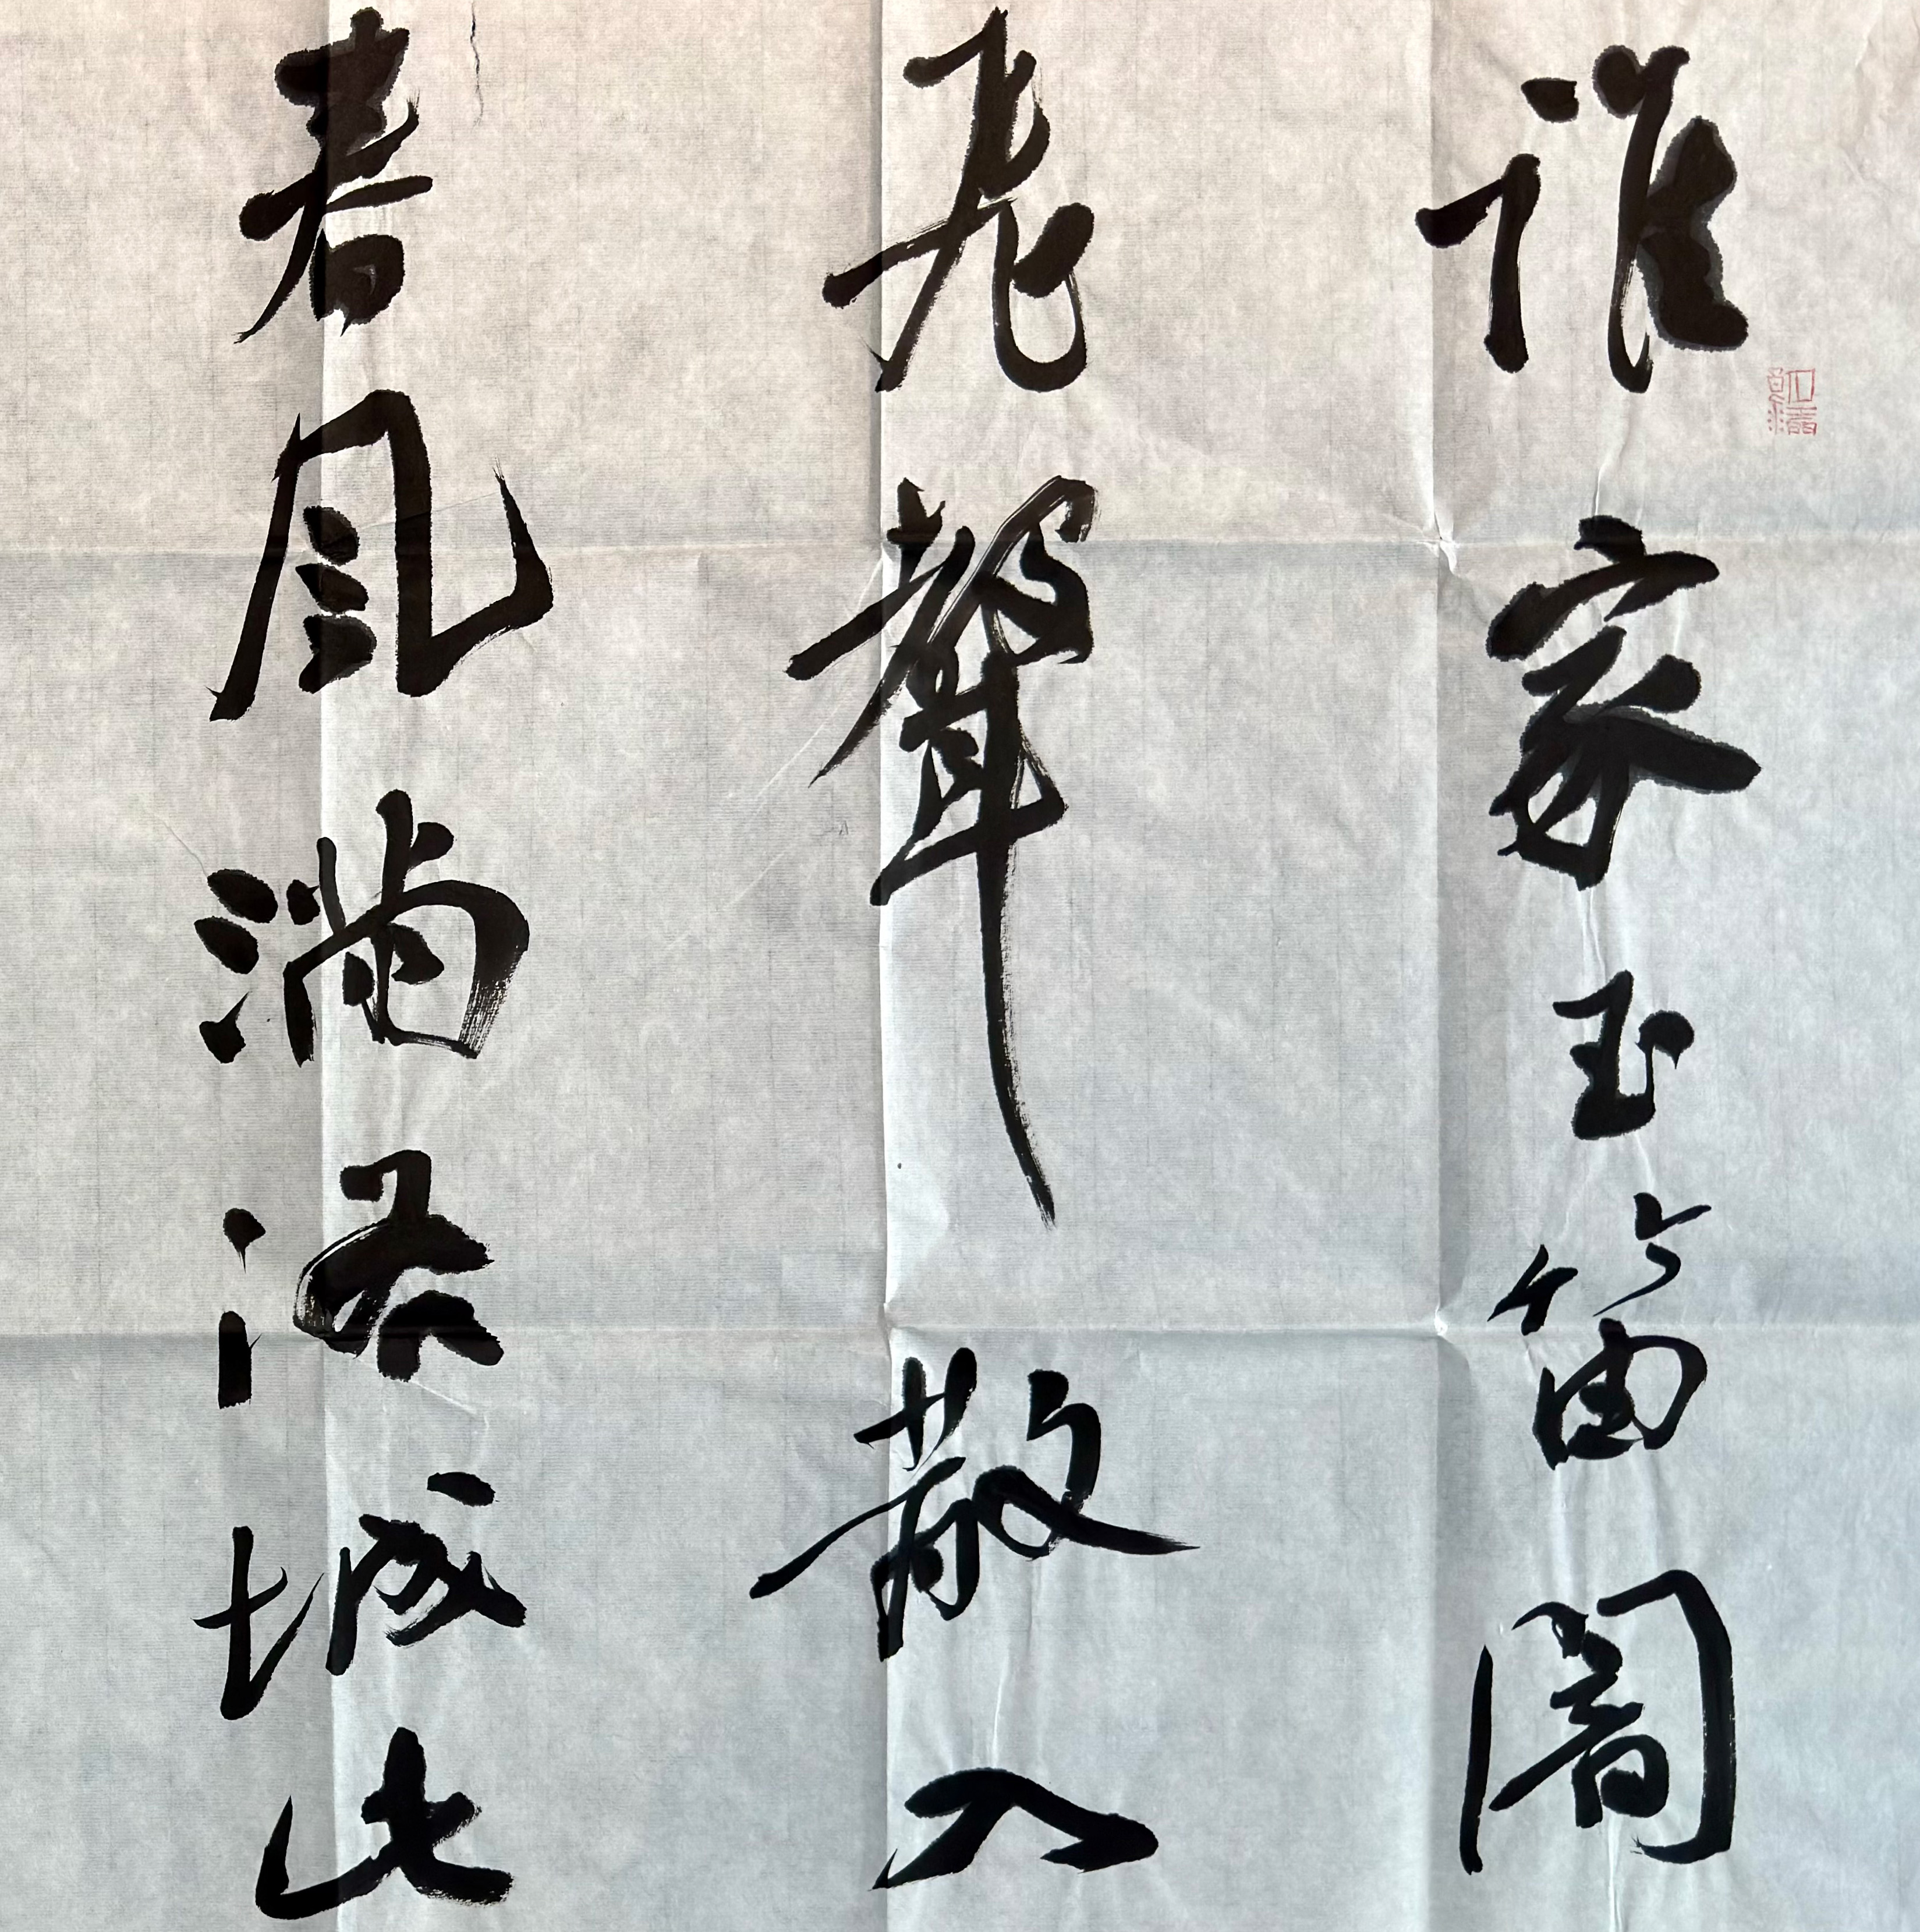 誰家玉笛闇
飛聲散入
春風滿洛城此